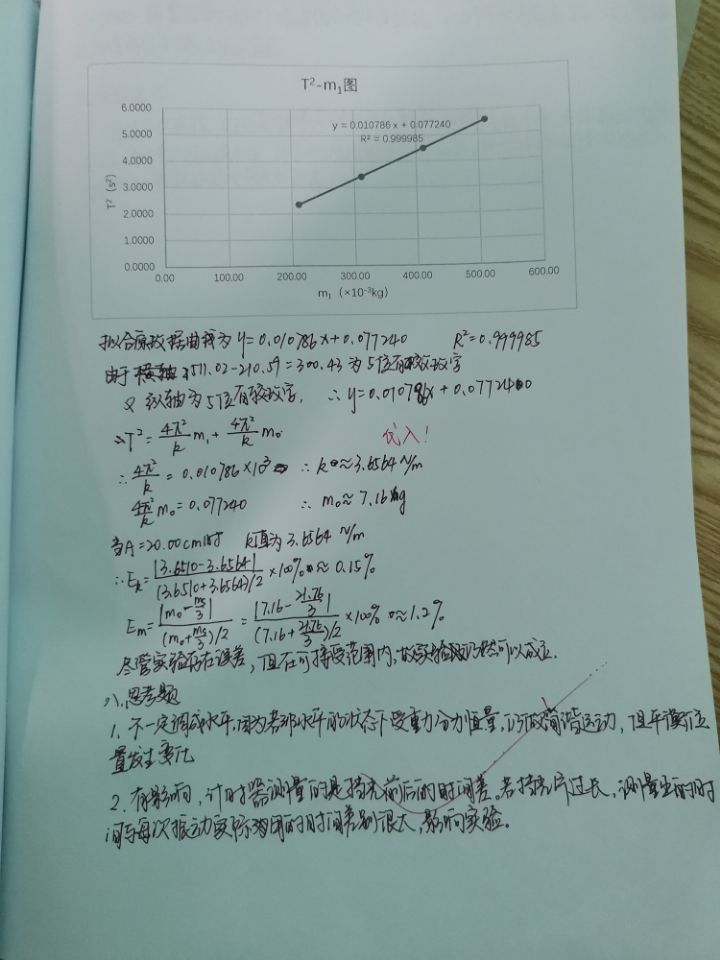 T²-m₁图
y = 0.010786 x + 0.077240
R² = 0.999985
6.0000
5.0000
4.0000
3.0000
2.0000
1.0000
0.0000
T² (s²)
0.00 100.00 200.00 300.00 400.00 500.00 600.00
m₁ (×10⁻³kg)
拟合原始数据曲线为 y=0.010786x+0.077240 R²=0.999985
由于横轴 511.02-210.59=300.43 为5位有效数字
又纵轴为5位有效数字, ∴ y=0.010786x+0.077240
∴T²=4π²/k m₁+4π²/k m₀
代入!
∴ 4π²/k = 0.010786×10³ ∴ k≈3.6564 N/m
4π²/k m₀=0.077240 ∴ m₀≈7.16 g
当A=20.00cm时 k值为3.6564 N/m
∴E_k=|3.6510-3.6564|/(3.6510+3.6564)/2 ×100%≈0.15%
E_m=|m₀-ms/3|/(m₀+ms/3)/2 = |7.16-21.76/3|/(7.16+21.76/3)/2 ×100%≈1.2%
尽管实验存在误差,但在可接受范围内,故实验仍然可以成立.
八.思考题
1. 不一定调成水平,因为若非水平的状态下受重力分力恒量,仍做简谐运动,但平衡位
置发生变化
2. 有影响,计时器测量的是挡光前后的时间差。若挡光片过长,测量出的时
间与每次振动实际周期的时间差别很大,影响实验。